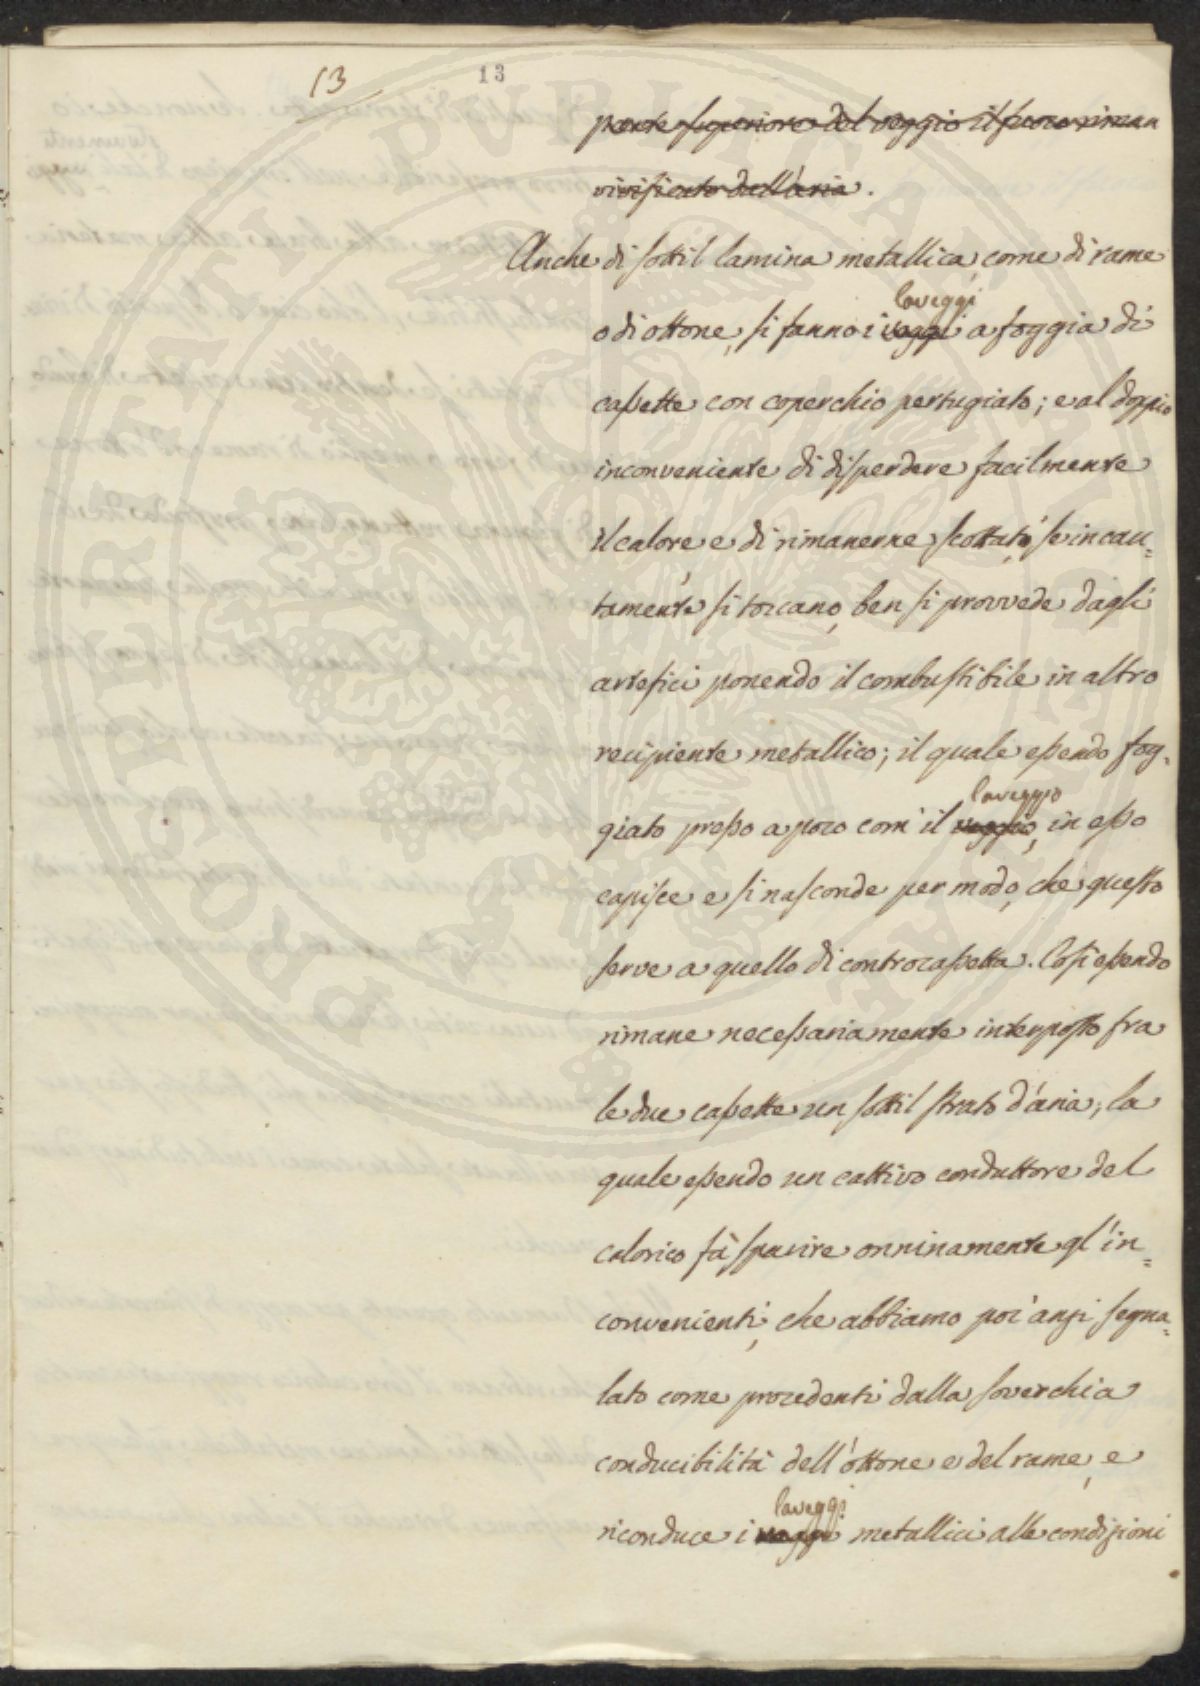 13
13
parte superiore del veggio il fuoco riman
vivificato dall'aria.
Anche di sottil lamina metallica, come di rame
laveggi
o di ottone, si fanno i veggi a foggia di
cassette con coperchio pertugiato; e al doppio
inconveniente di disperdere facilmente
il calore, e di rimanerne scottato, se incau=
tamente si toccano, ben si provvede dagli
artefici ponendo il combustibile in altro
recipiente metallico; il quale essendo fog-
laveggio
giato presso a poco com' il veggio, in esso
capisce e si nasconde per modo, che questo
serve a quello di controcassetta. Così essendo
rimane necessariamente interposto fra
le due cassette un sottil strato d'aria; la
quale essendo un cattivo conduttore del
calorico fà sparire onninamente gl'in=
convenienti, che abbiamo poc'anzi segna-
lato come procedenti dalla soverchia
conducibilità dell'ottone e del rame, e
laveggi
riconduce i veggi metallici alle condizioni
PROSPERITATI PVBLICAE AVGENDAE